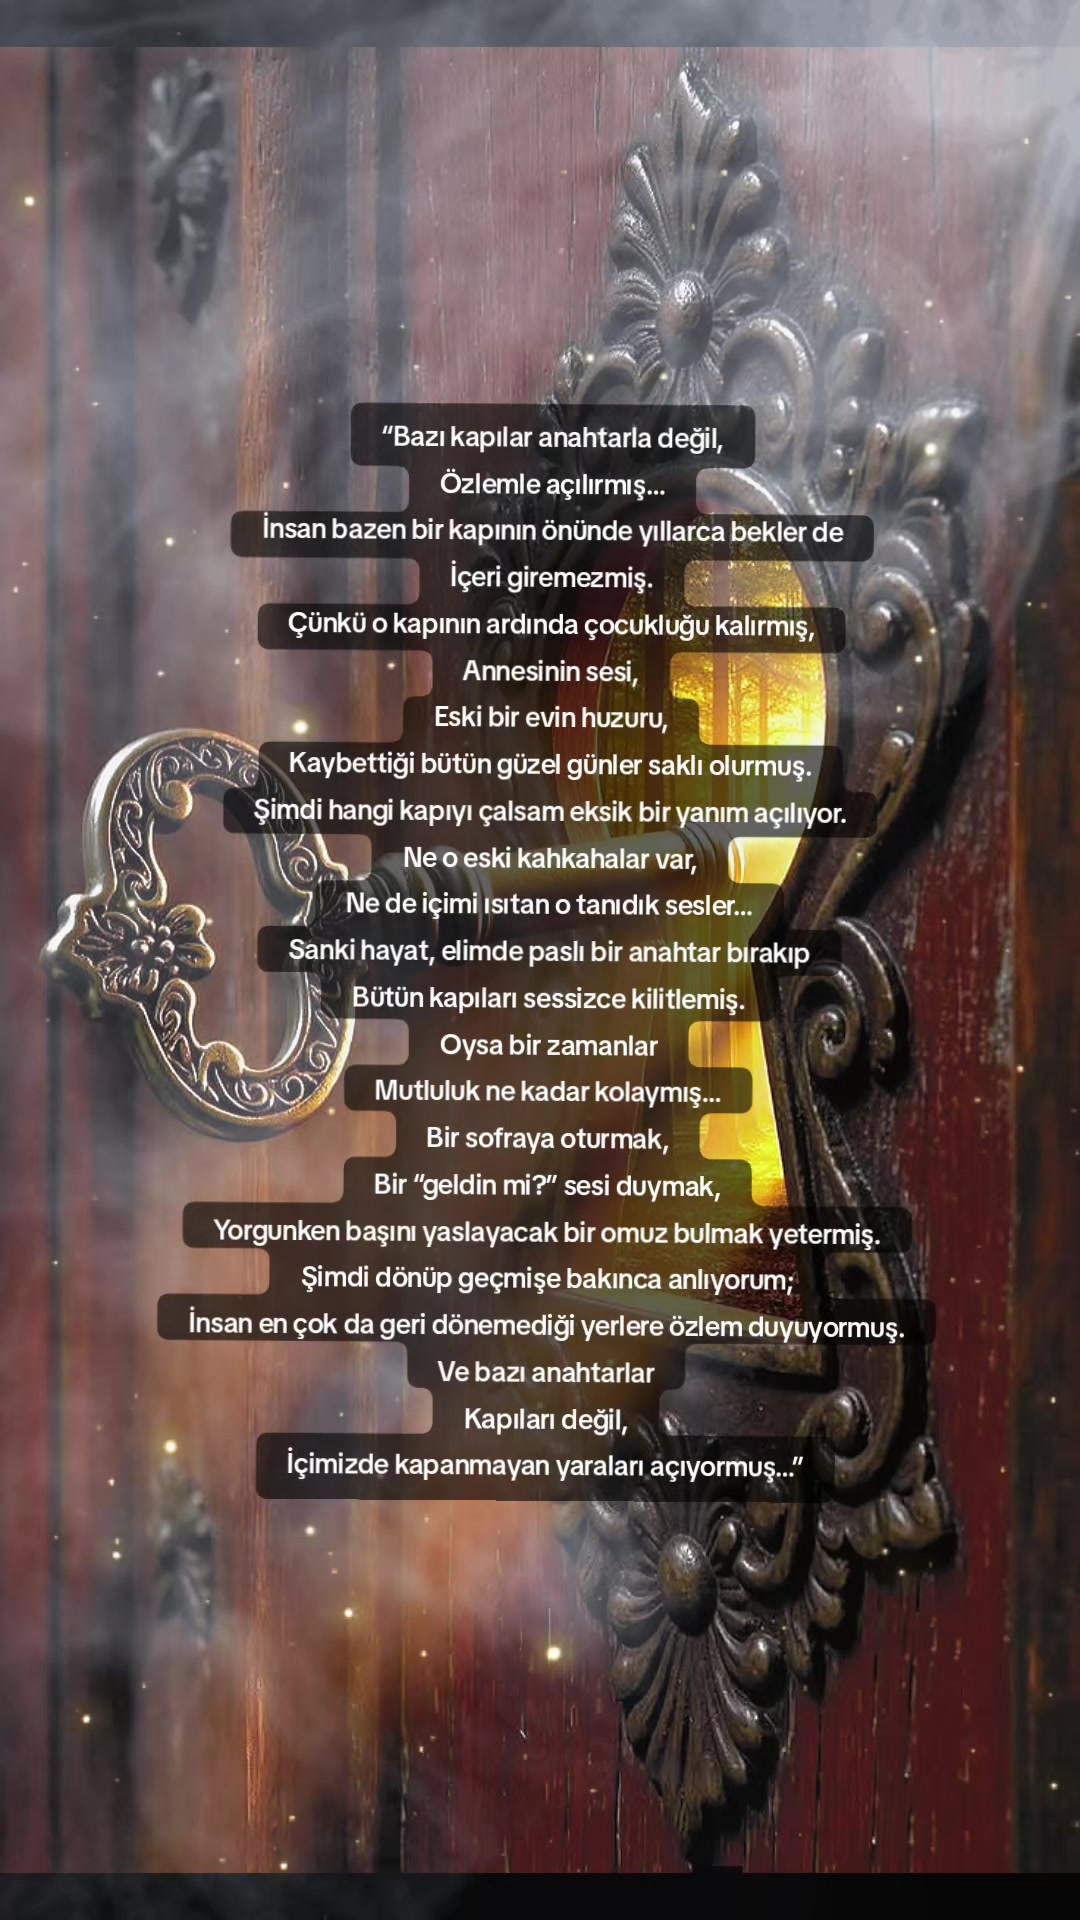 “Bazı kapılar anahtarla değil,
Özlemle açılırmış...
İnsan bazen bir kapının önünde yıllarca bekler de
İçeri giremezmiş.
Çünkü o kapının ardında çocukluğu kalırmış,
Annesinin sesi,
Eski bir evin huzuru,
Kaybettiği bütün güzel günler saklı olurmuş.
Şimdi hangi kapıyı çalsam eksik bir yanım açılıyor.
Ne o eski kahkahalar var,
Ne de içimi ısıtan o tanıdık sesler...
Sanki hayat, elimde paslı bir anahtar bırakıp
Bütün kapıları sessizce kilitlemiş.
Oysa bir zamanlar
Mutluluk ne kadar kolaymış...
Bir sofraya oturmak,
Bir “geldin mi?” sesi duymak,
Yorgunken başını yaslayacak bir omuz bulmak yetermiş.
Şimdi dönüp geçmişe bakınca anlıyorum;
İnsan en çok da geri dönemediği yerlere özlem duyuyormuş.
Ve bazı anahtarlar
Kapıları değil,
İçimizde kapanmayan yaraları açıyormuş...”